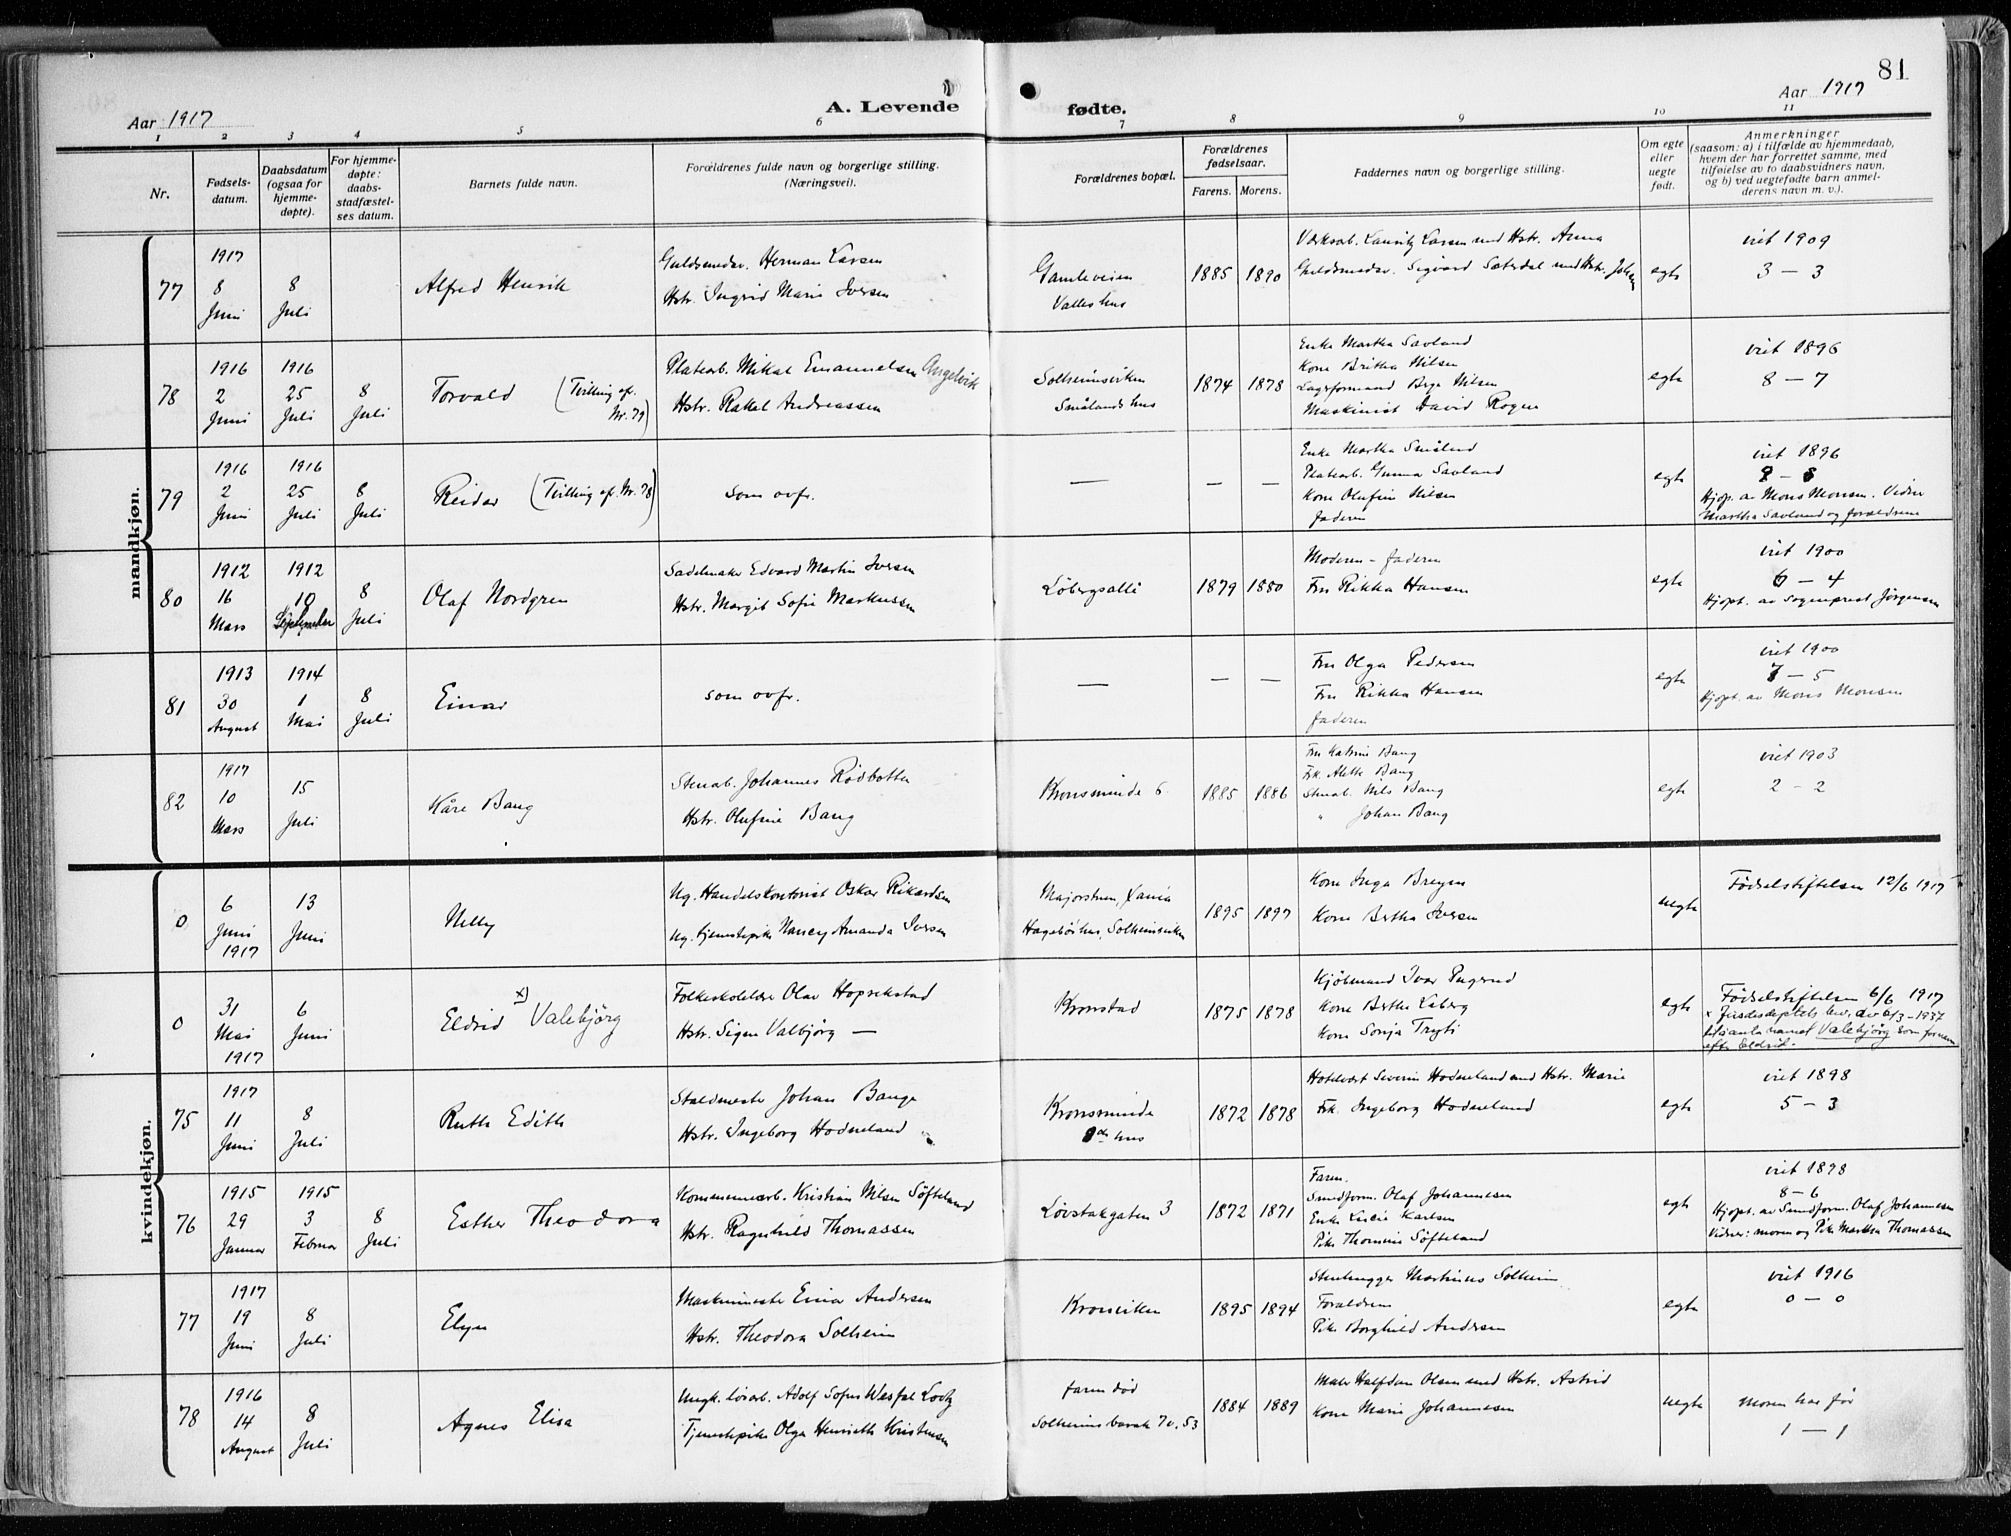 81
Aar 1917
A. Levende
fødte.
Aar 1917
1 2 3 4 5 6 7 8 9 10 11
Nr.
Fødsels-
datum.
Daabsdatum
(ogsaa for
hjemme-
døpte).
For hjemme-
døpte:
daabs-
stadfæstel-
ses datum.
Barnets fulde navn.
Forældrenes fulde navn og borgerlige stilling.
(Næringsvei).
Forældrenes bopæl.
Forældrenes
fødselsaar.
Farens. Morens.
Faddernes navn og borgerlige stilling.
Om egte
eller
uegte
født.
Anmerkninger
(saasom: a) i tilfælde av hjemmedaab,
hvem der har forrettet samme, med
tilføielse av to daabsvidners navn,
og b) ved uegtefødte barn anmel-
derens navn m. v.).
mandkjøn.
77
1917
8
Juni
8
Juli
Alfred Henrik
Guldsmedsv. Herman Larsen
Hstr. Ingrid Marie Iversen
Gamleveien
Valles hus
1885 1890
Verksarb. Lauritz Larsen med Hstr. Anna
Guldsmedsv. Sigvard Sætrdal med Hstr.
egte
viet 1909
3 — 3
78
1916
2
Juni
1916
25
Juli
8
Juli
Torvald (Tvilling af.
Nr. 79)
Platearb. Mikal Emanuelsen Angelvik
Hstr. Rakel Andreassen
Solheimsviken
Smålands hus
1874 1878
Enke Martha Savland
Kone Britha Nilsen
Lagerformand Brye Nilsen
Maskinist David Rogne
egte
viet 1896
8 — 7
79
1916
2
Juni
1916
25
Juli
8
Juli
Reidar (Tvilling af. Nr. 78)
som ovfr.
— — —
Enke Martha Småland
Platearb. Gunna Savland
Kone Olufine Nilsen
Faderen
egte
viet 1896
8 — 8
Hjdpt. av Mons Monsen. Vidner
Martha Savland og forældrene
80
1912
16
Mars
1912
10
September
8
Juli
Olaf Nordgren
Sadelmaker Edvard Martin Iversen
Hstr. Margit Sofie Markussen
Løbergsalle
1879 1880
Moderen – faderen
Fru Rikka Hansen
egte
viet 1900
6 — 4
Hjdpt. av Sogneprest Jørgensen
81
1913
30
August
1914
1
Mai
8
Juli
Einar
som ovfr.
— — —
Fru Olga Pedersen
Fru Rikka Hansen
Faderen
egte
viet 1900
7 — 5
Hjdpt. av Mons Monsen
82
1917
10
Mars
15
Juli
Kåre Bang
Stuab. Johannes Rødbotten
Hstr. Olufine Bang
Kronsminde 6
1885 1886
Fru Katrine Bang
Frk. Alette Bang
Stuab. Nils Bang
" Johan Bang
egte
viet 1903
2 – 2
kvindekjøn.
0
6
Juni
1917
13
Juni
Nelly
Ug. Handelskontorist Oskar Rikardsen
Ug. tjenestepike Nancy Amanda Iversen
Majorstuen, Xania
Hagebøs hus, Solheimsviken
1895 1897
Kone Inga Breyen
Kone Bertha Iversen
uegte
Fødselstiftelsen 12/6 1917
0
31
Mai
1917
6
Juni
Eldrid x) Valebjörg
Folkeskolelærer Olav Hoprekstad
Hstr. Signe Valbjörg —
Kronstad
1875 1878
Kjøbmand Ivar Pugerud
Kone Berthe Laberg
Kone Sonja Trygti
egte
Fødselstiftelsen 6/6 1917
x Jusdesdeptets bev. av 6/3-1937
til å anta navnet Valebjörg som fornavn
efter Eldrid.
75
1917
11
Juni
8
Juli
Ruth Edith
Staldmester Johan Bange
Hstr. Ingeborg Hodneland
Kronsminde
hus
1872 1878
Hotelvært Severin Hodneland med Hstr. Marie
Frk. Ingeborg Hodneland
egte
viet 1898
5 – 3
76
1915
29
Januar
1915
3
Februar
8
Juli
Esther Theodora
Kommunearb. Kristian Nilsen Söfteland
Hstr. Ragnhild Thomassen
Løvstakgaten 3
1872 1871
Faren.
Smedform. Olaf Johannesen
Enke Lucie Karlsen
Pike Thomine Söfteland
egte
viet 1898
8 – 6
Hjdpt. av Smedform. Olaf Johannesen
Vidner: moren og Pike Martha Thomassen
77
1917
19
Juni
8
Juli
Elyn
Maskinmester Einar Andersen
Hstr. Theodora Solheim
Kronviken
1895 1894
Stenhugger Martinus Solheim
Forældrene
Pike Borghild Andersen
egte
viet 1916
0 – 0
78
1916
14
August
8
Juli
Agnes Elisa
Ungk. løsarb. Adolf Sofus Wesfal Lootz
Tjenestepike Olga Henriette Kristensen
faren død
Solheims barak 7 v. 53
1884 1889
Maler Halfdan Olsen med Hstr. Astrid
Kone Marie Johannesen
uegte
Moren har før
1 — 1